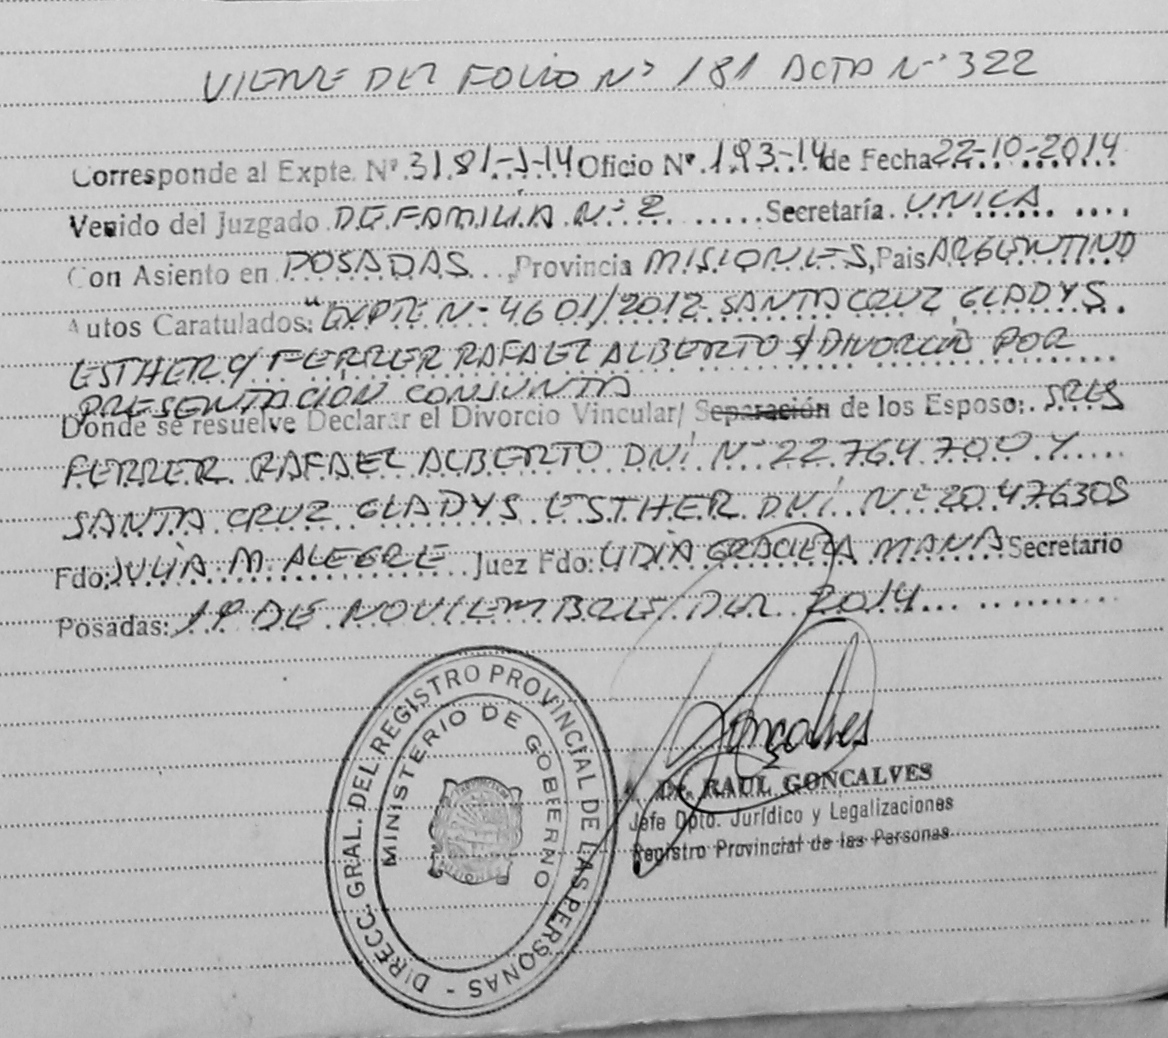 VIENE DEL FOLIO Nº 181 ACTA Nº 322
Corresponde al Expte. Nº 3181-J-14 Oficio Nº 193-14 de Fecha 22-10-2014
Venido del Juzgado DE FAMILIA Nº 2 Secretaría UNICA
Con Asiento en POSADAS, Provincia MISIONES, Pais ARGENTINO
Autos Caratulados: "EXPTE Nº 4601/2012 SANTA CRUZ, GLADYS
ESTHER C/ FERRER RAFAEL ALBERTO S/ DIVORCIO POR
PRESENTACION CONJUNTA
Donde se resuelve Declarar el Divorcio Vincular/ Separación de los Esposo: SRES
FERRER RAFAEL ALBERTO DNI Nº 22.764.700 Y
SANTA CRUZ GLADYS ESTHER DNI Nº 20476305
Fdo: JULIA M. ALEGRE Juez Fdo: LIDIA GRACIELA MANA Secretario
Posadas: 19 DE NOVIEMBRE DEL 2014
DIRECC. GRAL. DEL REGISTRO PROVINCIAL DE LAS PERSONAS -
MINISTERIO DE GOBIERNO
Gonçalves
Dr. RAUL GONCALVES
Jefe Dpto. Jurídico y Legalizaciones
Registro Provincial de las Personas